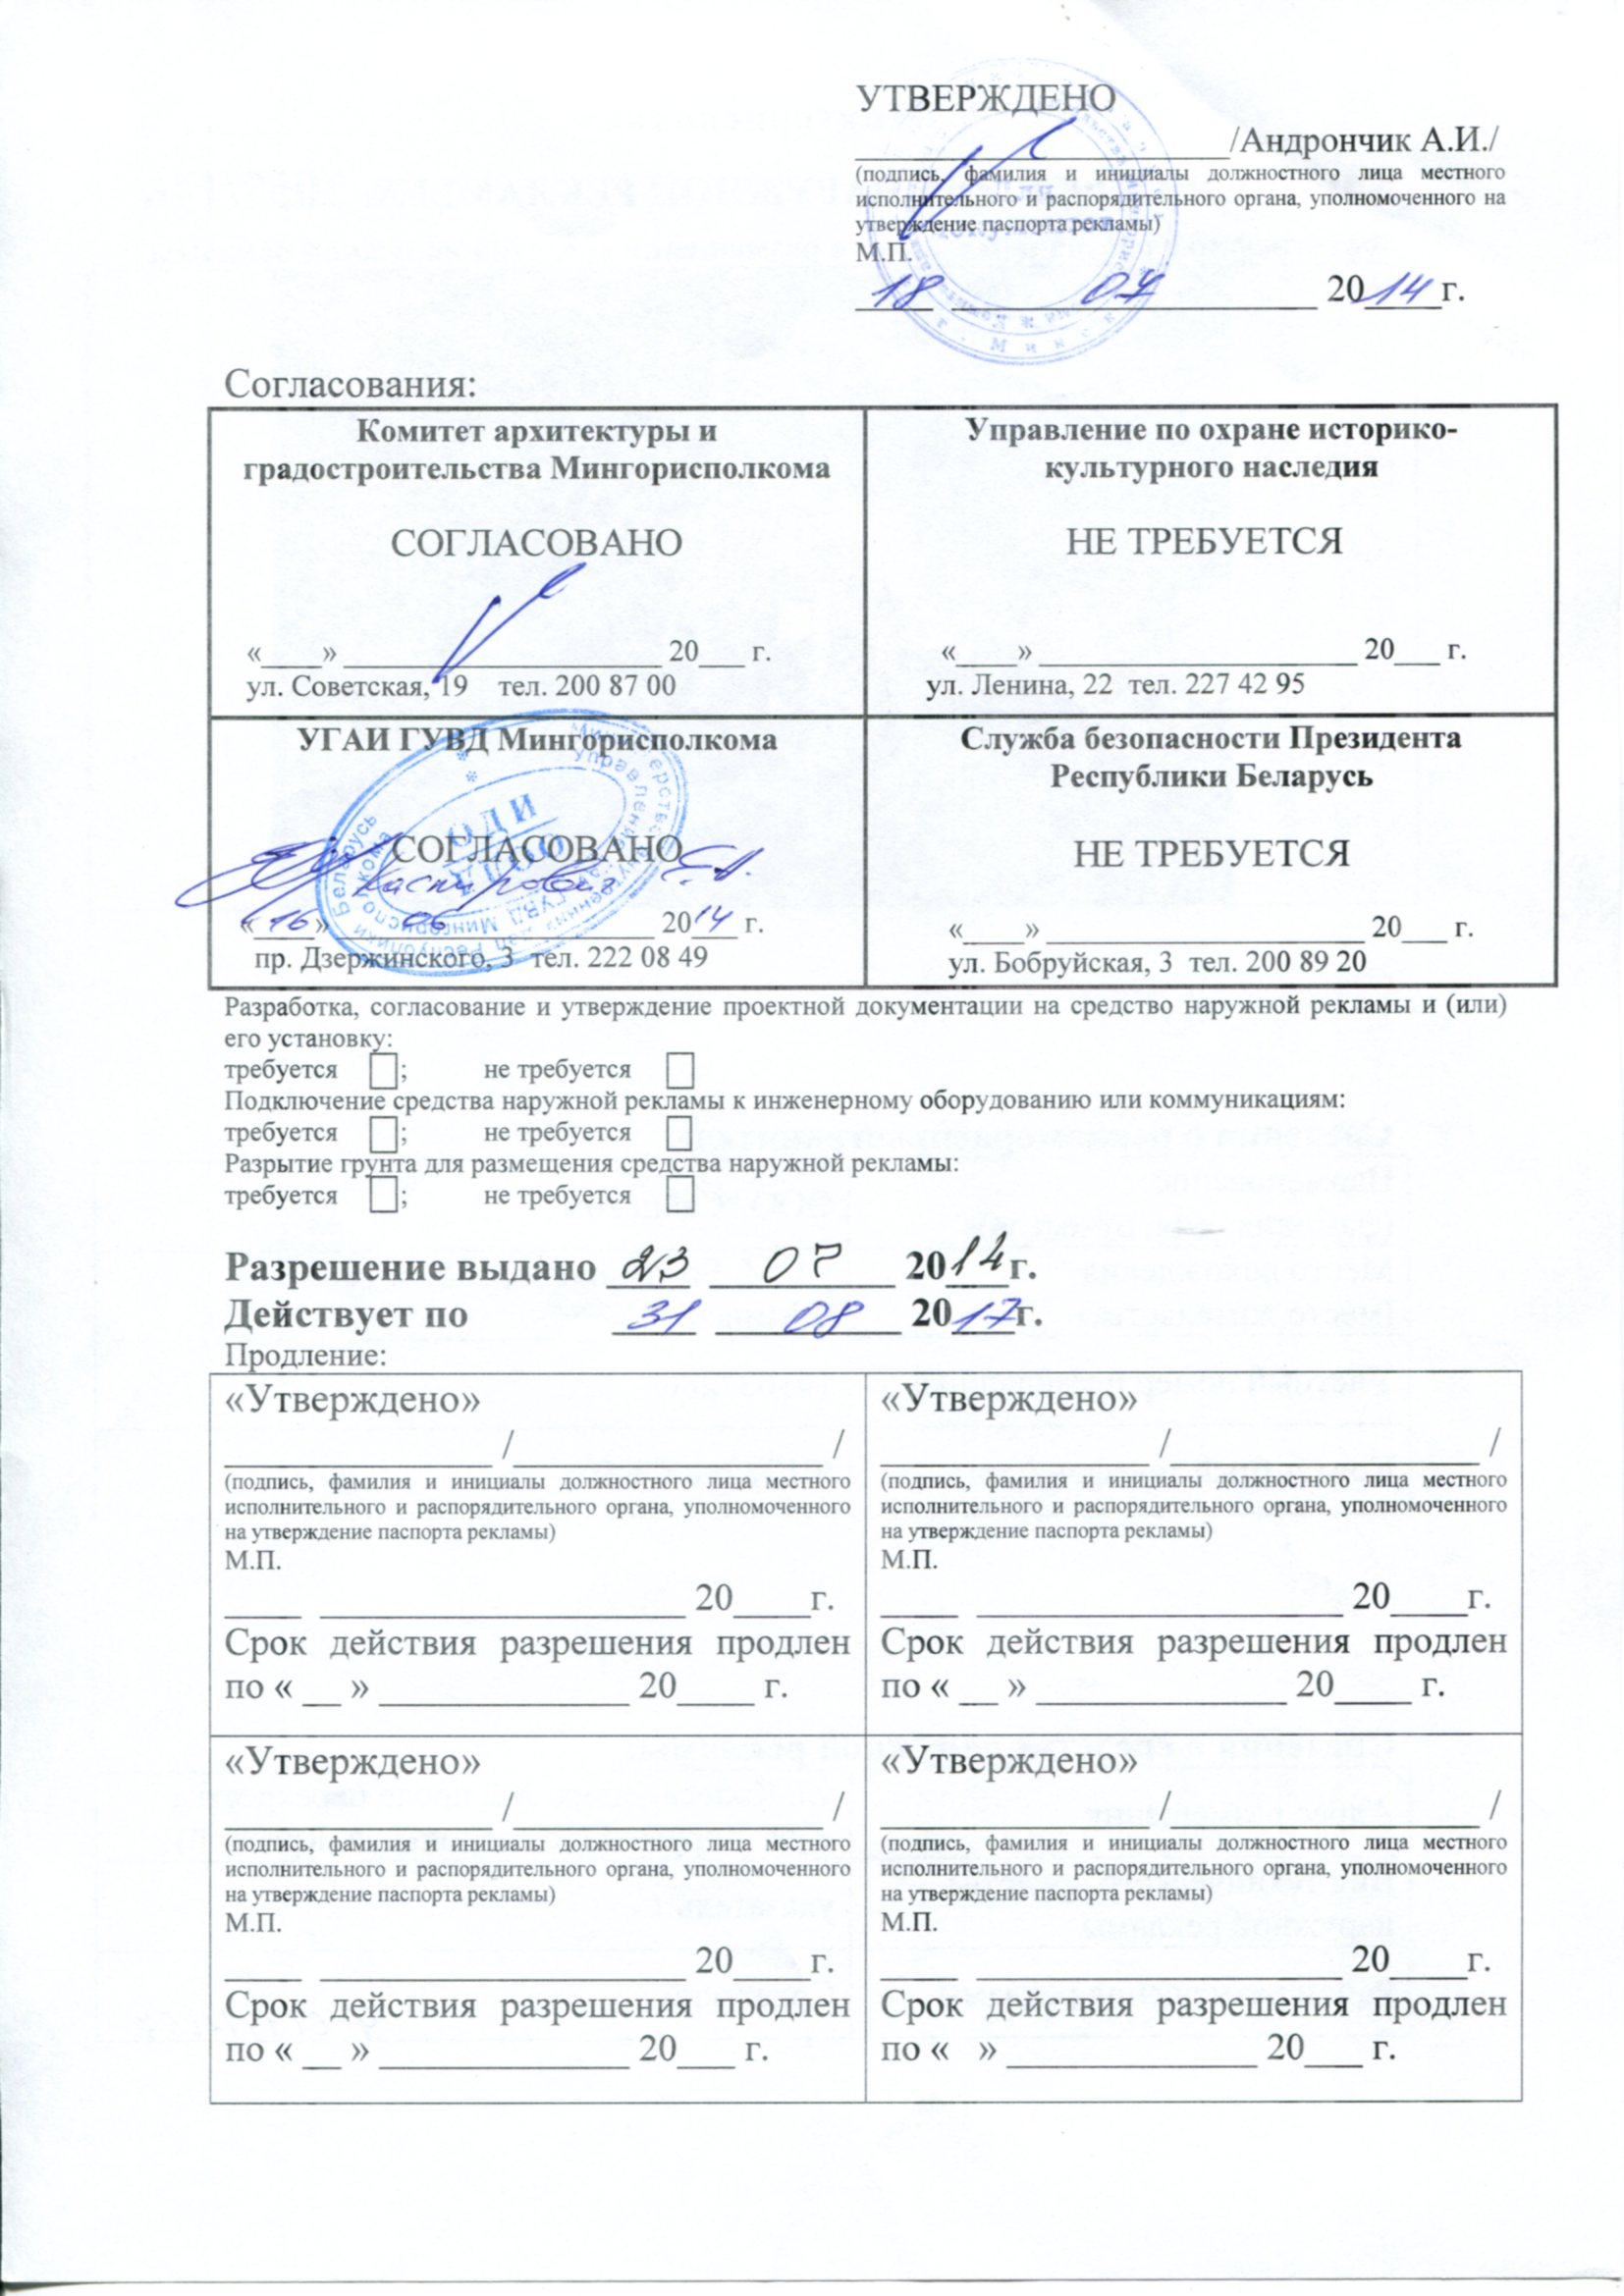 УТВЕРЖДЕНО
____________________/Андрончик А.И./
(подпись, фамилия и инициалы должностного лица местного
исполнительного и распорядительного органа, уполномоченного на
утверждение паспорта рекламы)
М.П.
18 07 2014г.
Согласования:
Комитет архитектуры и
градостроительства Мингорисполкома
СОГЛАСОВАНО
«____» _____________________ 20___ г.
ул. Советская, 19 тел. 200 87 00
Управление по охране историко-
культурного наследия
НЕ ТРЕБУЕТСЯ
«____» _____________________ 20___ г.
ул. Ленина, 22 тел. 227 42 95
УГАИ ГУВД Мингорисполкома
СОГЛАСОВАНО
«16» 06 2014 г.
пр. Дзержинского, 3 тел. 222 08 49
Служба безопасности Президента
Республики Беларусь
НЕ ТРЕБУЕТСЯ
«____» _____________________ 20___ г.
ул. Бобруйская, 3 тел. 200 89 20
Разработка, согласование и утверждение проектной документации на средство наружной рекламы и (или)
его установку:
требуется ☐; не требуется ☐
Подключение средства наружной рекламы к инженерному оборудованию или коммуникациям:
требуется ☐; не требуется ☐
Разрытие грунта для размещения средства наружной рекламы:
требуется ☐; не требуется ☐
Разрешение выдано 23 07 2014г.
Действует по 31 08 2017г.
Продление:
«Утверждено»
______________ /________________ /
(подпись, фамилия и инициалы должностного лица местного
исполнительного и распорядительного органа, уполномоченного
на утверждение паспорта рекламы)
М.П.
____ ___________________ 20____г.
Срок действия разрешения продлен
по « __ » _____________ 20____ г.
«Утверждено»
______________ /________________ /
(подпись, фамилия и инициалы должностного лица местного
исполнительного и распорядительного органа, уполномоченного
на утверждение паспорта рекламы)
М.П.
____ ___________________ 20____г.
Срок действия разрешения продлен
по « __ » _____________ 20____ г.
«Утверждено»
______________ /________________ /
(подпись, фамилия и инициалы должностного лица местного
исполнительного и распорядительного органа, уполномоченного
на утверждение паспорта рекламы)
М.П.
____ ___________________ 20____г.
Срок действия разрешения продлен
по « __ » _____________ 20___ г.
«Утверждено»
______________ /________________ /
(подпись, фамилия и инициалы должностного лица местного
исполнительного и распорядительного органа, уполномоченного
на утверждение паспорта рекламы)
М.П.
____ ___________________ 20____г.
Срок действия разрешения продлен
по « » _____________ 20___ г.